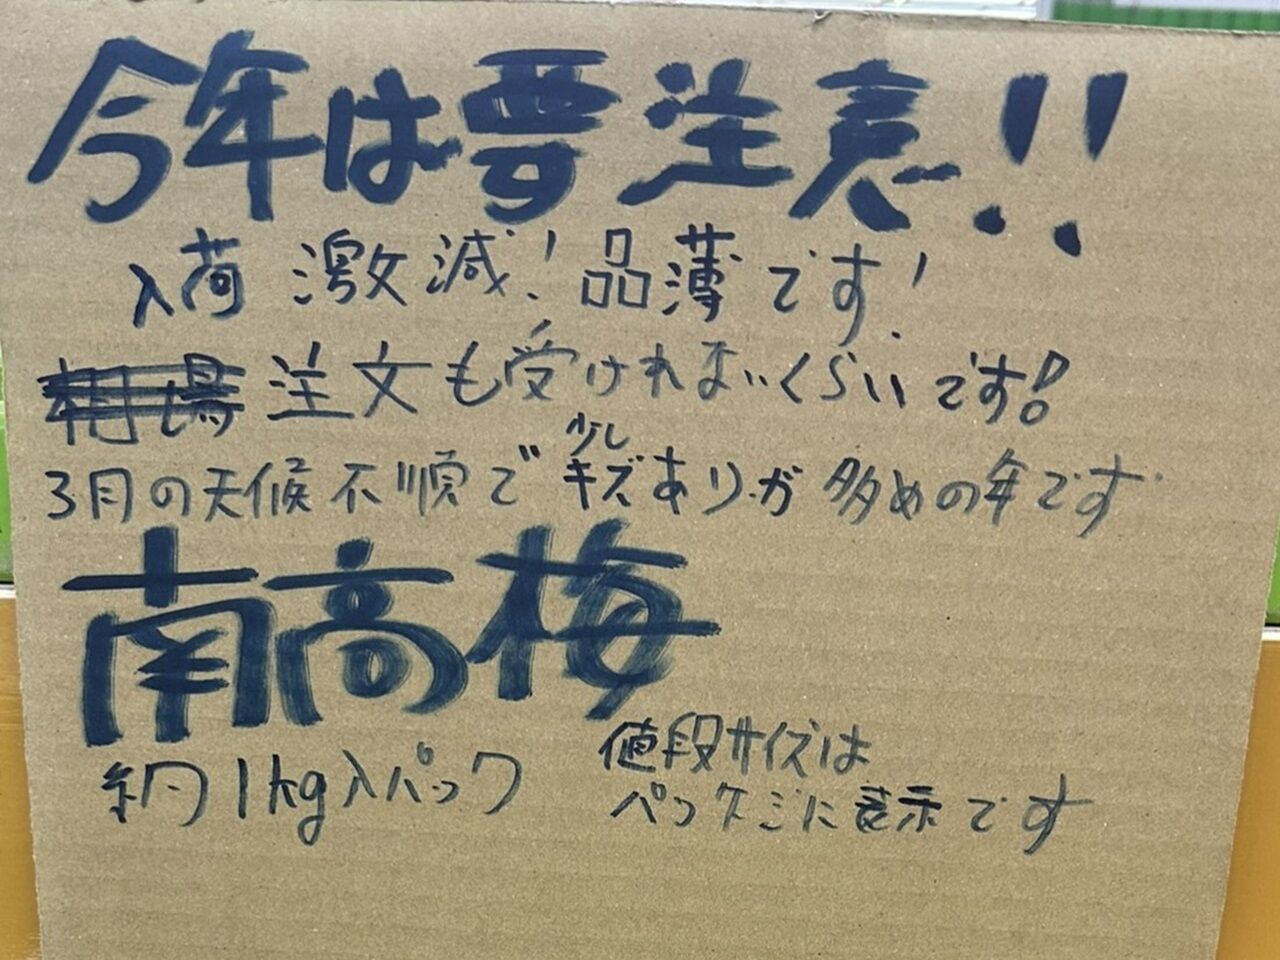 今年は要注意!!
入荷激減!品薄です!
相場 注文も受けれないくらいです!
3月の天候不順で少しキズありが多めの年です
南高梅
約1kg入パック
値段サイズは
パッケジに表示です